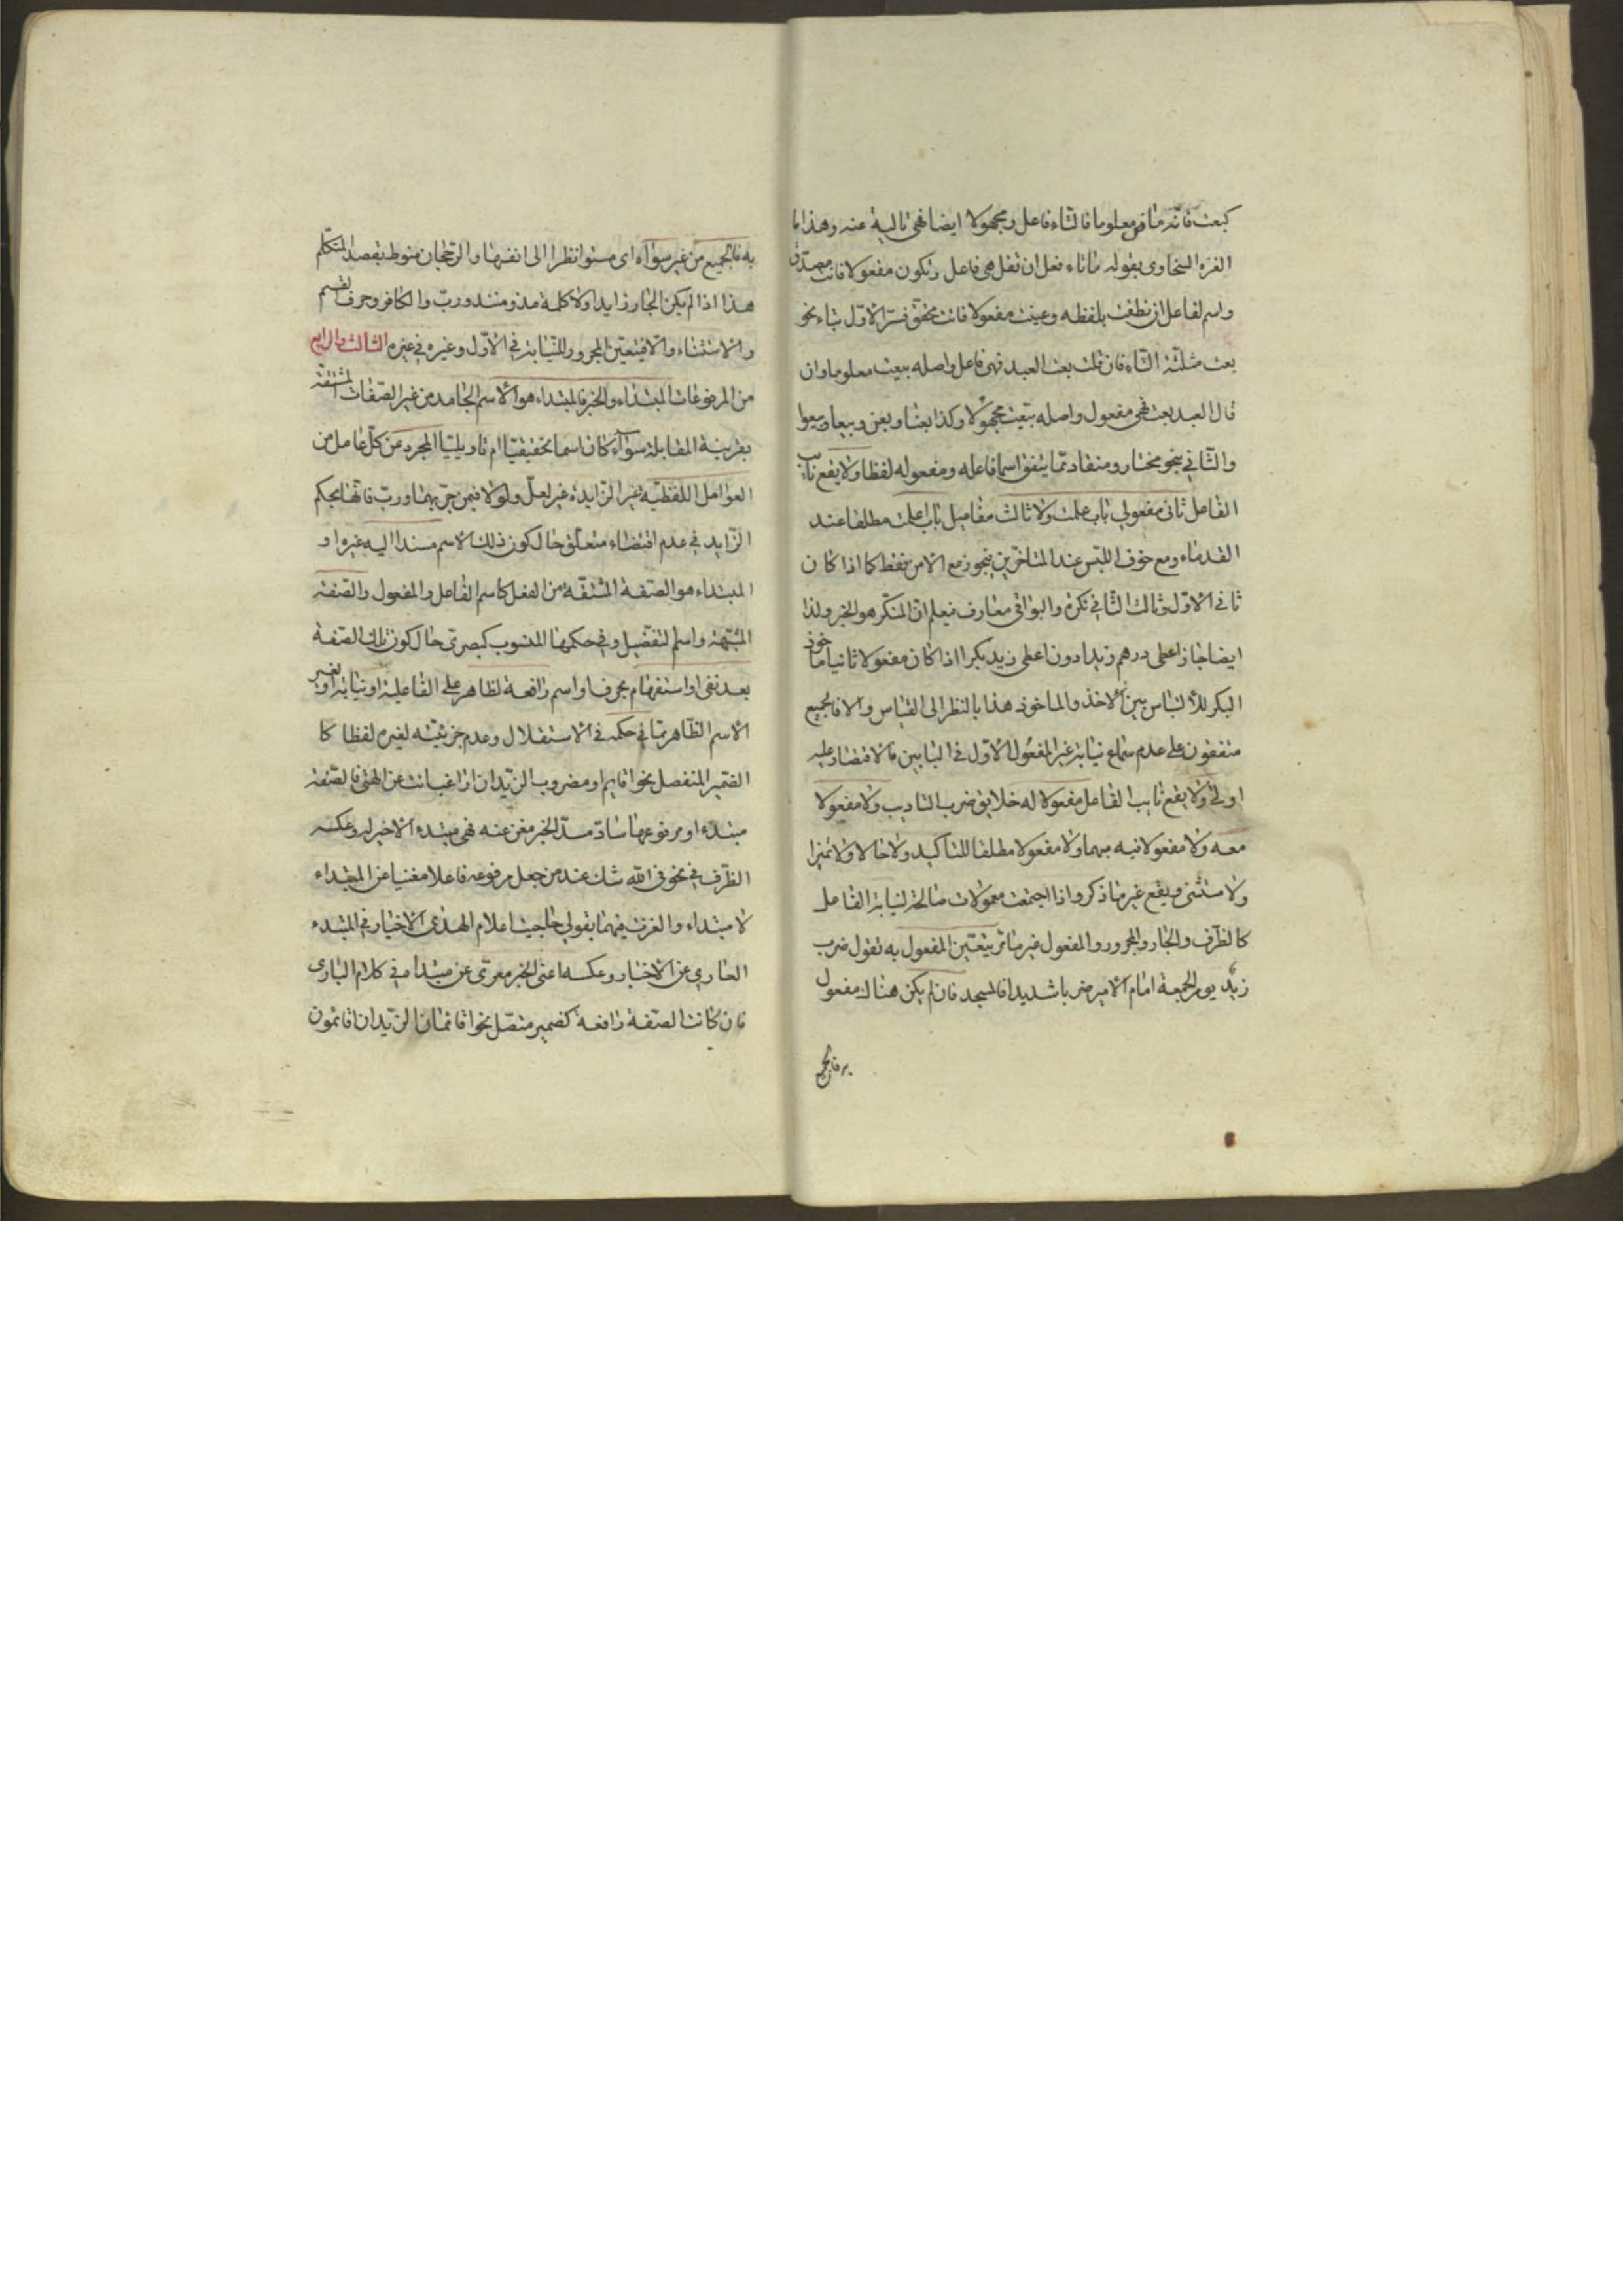 كبعت فانه مفعوله معلوما فالتاء فاعل ومجهولا ايضا فهي نائبة عنه وهذا ما
الغزه السخاوى بقوله ما تاء فعل ان تقل هي فاعل وتكون مفعولا فانت مصدق
واسم لفاعل ان نطقت بلفظه وعنيت مفعولا فانت محقق فسر الاول بتاء نحو
بعت مثلثة التاء فان قلت بعت العبد فهى فاعل واصله بيعت معلوما وان
قال العبد بعت فهي مفعول واصله بيعت مجهولا وكذا بعنا وبعن وبيعا وبيعوا
والثاني بنحو مختار ومنقاد مما يتفق اسما فاعله ومفعوله لفظا ولا يقع نائب
الفاعل ثانى مفعولي باب علمت ولا ثالث مفاعيل باب اعلمت مطلقا عند
القدماء ومع خوف اللبس عند المتاخرين فيجوز مع الامن فقط كما اذا كان
ثاني الاول وثالث الثاني نكرة والبواقي معارف فيعلم ان المنكر هو الخبر ولذا
ايضا جاز اعطى درهم زيدا دون اعطى زيد بكرا اذا كان مفعولا ثانيا ماخوذ
البكر للالتباس بين الاخذ والماخوذ هذا بالنظر الى القياس والا فالجميع
متفقون على عدم سماع نيابة غير المفعول الاول في البابين فالاقتصار عليه
اولى ولا يقع نائب الفاعل مفعولا له خلا بق ضرب التاديب ولا مفعولا
معه ولا مفعولا فيه مبهما ولا مفعولا مطلقا للتاكيد ولا حالا ولا تميزا
ولا مستثنى ويقع غير ما ذكر واذا اجتمعت معمولات صالحة لنيابة الفاعل
كالظرف والجار والمجرور والمفعول غير ما مر يتعين المفعول به تقول ضرب
زيد يوم الجمعة امام الامير ضربا شديدا في المسجد فان لم يكن هناك مفعول
به فالجميع
به فالجميع من غير سواء اى مستو انظرا الى انفسها والرجحان منوط بقصد المتكلم
هذا اذا لم يكن الجار زايدا ولا كلمة مذ ومنذ ورب والكاف وحرف القسم
والاستثناء والا فيتعين المجرور للنيابة في الاول وغيره في غيره الثالث والرابع
من المرفوعات المبتداء والخبر فالمبتداء هو الاسم الجامد من غير الصفات المشتقة
بقرينة المقابلة سوآء كان اسما تحقيقيا ام تاويليا المجرد عن كل عامل من
العوامل اللفظية غير الزايدة غير لعل ولولا فيمن جر بهما ورب فانها بحكم
الزايد في عدم اقتضاء متعلق حال كون ذلك الاسم مسندا اليه غيره او
المبتداء هو الصفة المشتقة من الفعل كاسم الفاعل والمفعول والصفة
المشبهة واسم التفضيل وفي حكمها المنسوب كبصرى حال كون تلك الصفة
بعد نفى او استفهام بحرف او اسم رافعة لظاهر على الفاعلية او نيابة او لغير
الاسم الظاهر مما في حكمه في الاستقلال وعدم جزئيته لغيره لفظا كا
الضمير المنفصل نحو اقايم او مضروب الزيدان اراغب انت عن الهتى فالصفة
مبتدء او مرفوعها ساد مسد الخبر مغن عنه فهي مبتدء لا خبر له وعكسه
الظرف في نحو فى الله شك عند من جعل مرفوعه فاعلا مغنيا عن المبتداء
لا مبتداء والغزت فيهما بقولي اعلام الهدى الاخيار في المبتدء
العارى عن الاخبار وعكسه اعنى الخبر معرى عن مبتدا في كلام البارى
فان كانت الصفة رافعة كضمير متصل نحو اقائمان الزيدان اقائمون